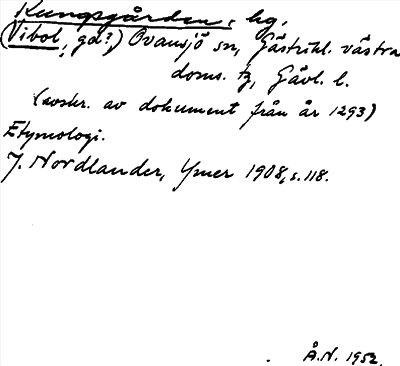 Kungsgården, hg,
(Vibol, gd?) Ovansjö sn, Gästrikl. västra
doms. tg, Gävl. l.
(avskr. av dokument från år 1293)
Etymologi.
J. Nordlander, Ymer 1908, s. 118.
Å.N. 1952.